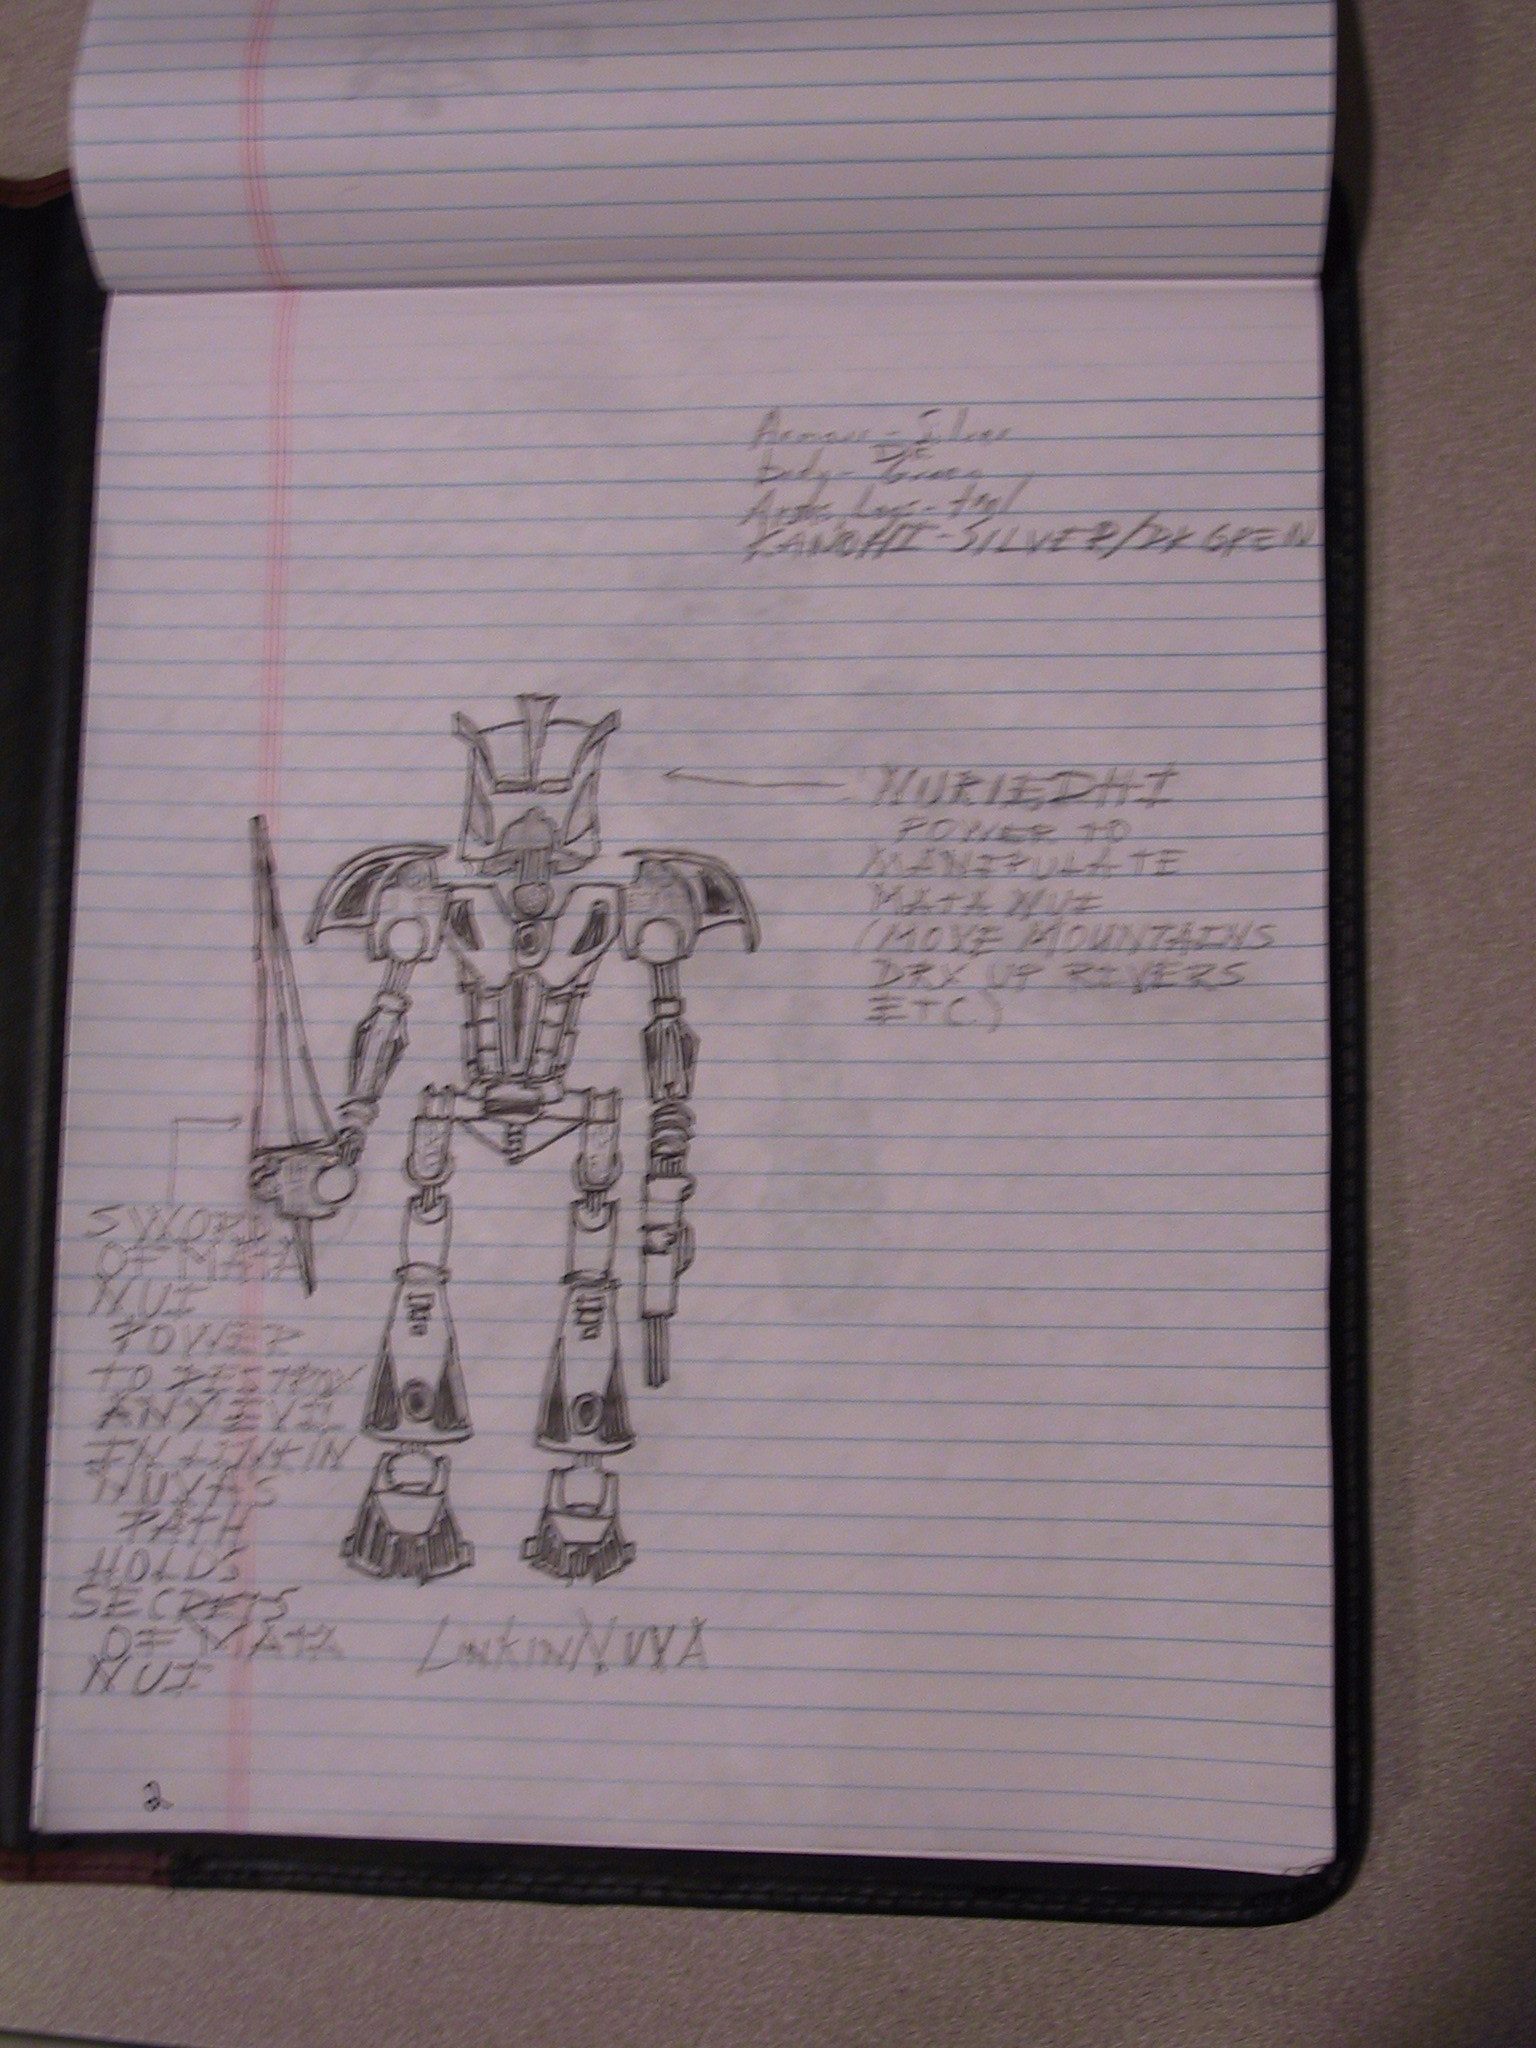 Armour - Silver
Body - DK Green
Arms, Legs - teal
KANOHI - SILVER/DK GREEN
NURIEDHI
POWER TO
MANIPULATE
MATA NUI
(MOVE MOUNTAINS
DRY UP RIVERS
ETC)
SWORD
OF MATA
NUI
POWER
TO DESTROY
ANY EVIL
IN LINKIN
NUVAS
PATH
HOLDS
SECRETS
OF MATA
NUI
Linkin NUVA
2